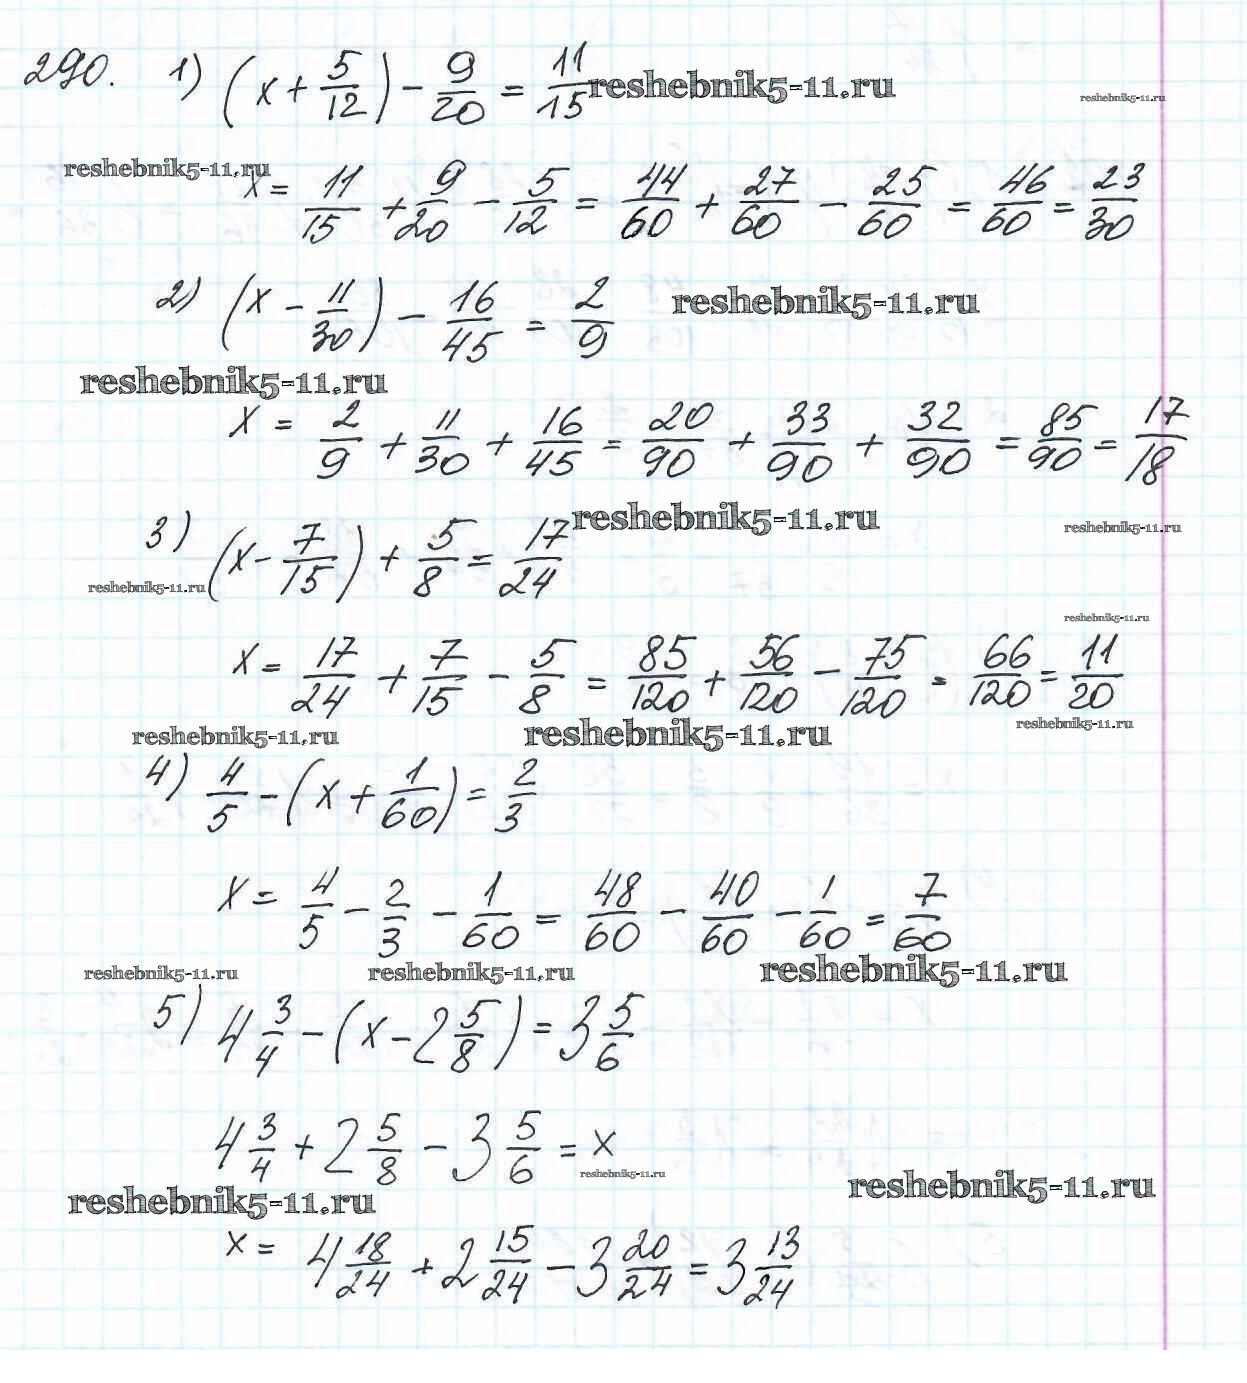 290. 1) (x + 5/12) - 9/20 = 11/15 reshebnik5-11.ru reshebnik5-11.ru
reshebnik5-11.ru
x = 11/15 + 9/20 - 5/12 = 44/60 + 27/60 - 25/60 = 46/60 = 23/30
2) (x - 11/30) - 16/45 = 2/9 reshebnik5-11.ru
reshebnik5-11.ru
x = 2/9 + 11/30 + 16/45 = 20/90 + 33/90 + 32/90 = 85/90 = 17/18
reshebnik5-11.ru reshebnik5-11.ru
3) (x - 7/15) + 5/8 = 17/24
reshebnik5-11.ru
reshebnik5-11.ru
x = 17/24 + 7/15 - 5/8 = 85/120 + 56/120 - 75/120 = 66/120 = 11/20
reshebnik5-11.ru reshebnik5-11.ru reshebnik5-11.ru
4) 4/5 - (x + 1/60) = 2/3
x = 4/5 - 2/3 - 1/60 = 48/60 - 40/60 - 1/60 = 7/60
reshebnik5-11.ru reshebnik5-11.ru reshebnik5-11.ru
5) 4 3/4 - (x - 2 5/8) = 3 5/6
4 3/4 + 2 5/8 - 3 5/6 = x
reshebnik5-11.ru
reshebnik5-11.ru reshebnik5-11.ru
x = 4 18/24 + 2 15/24 - 3 20/24 = 3 13/24